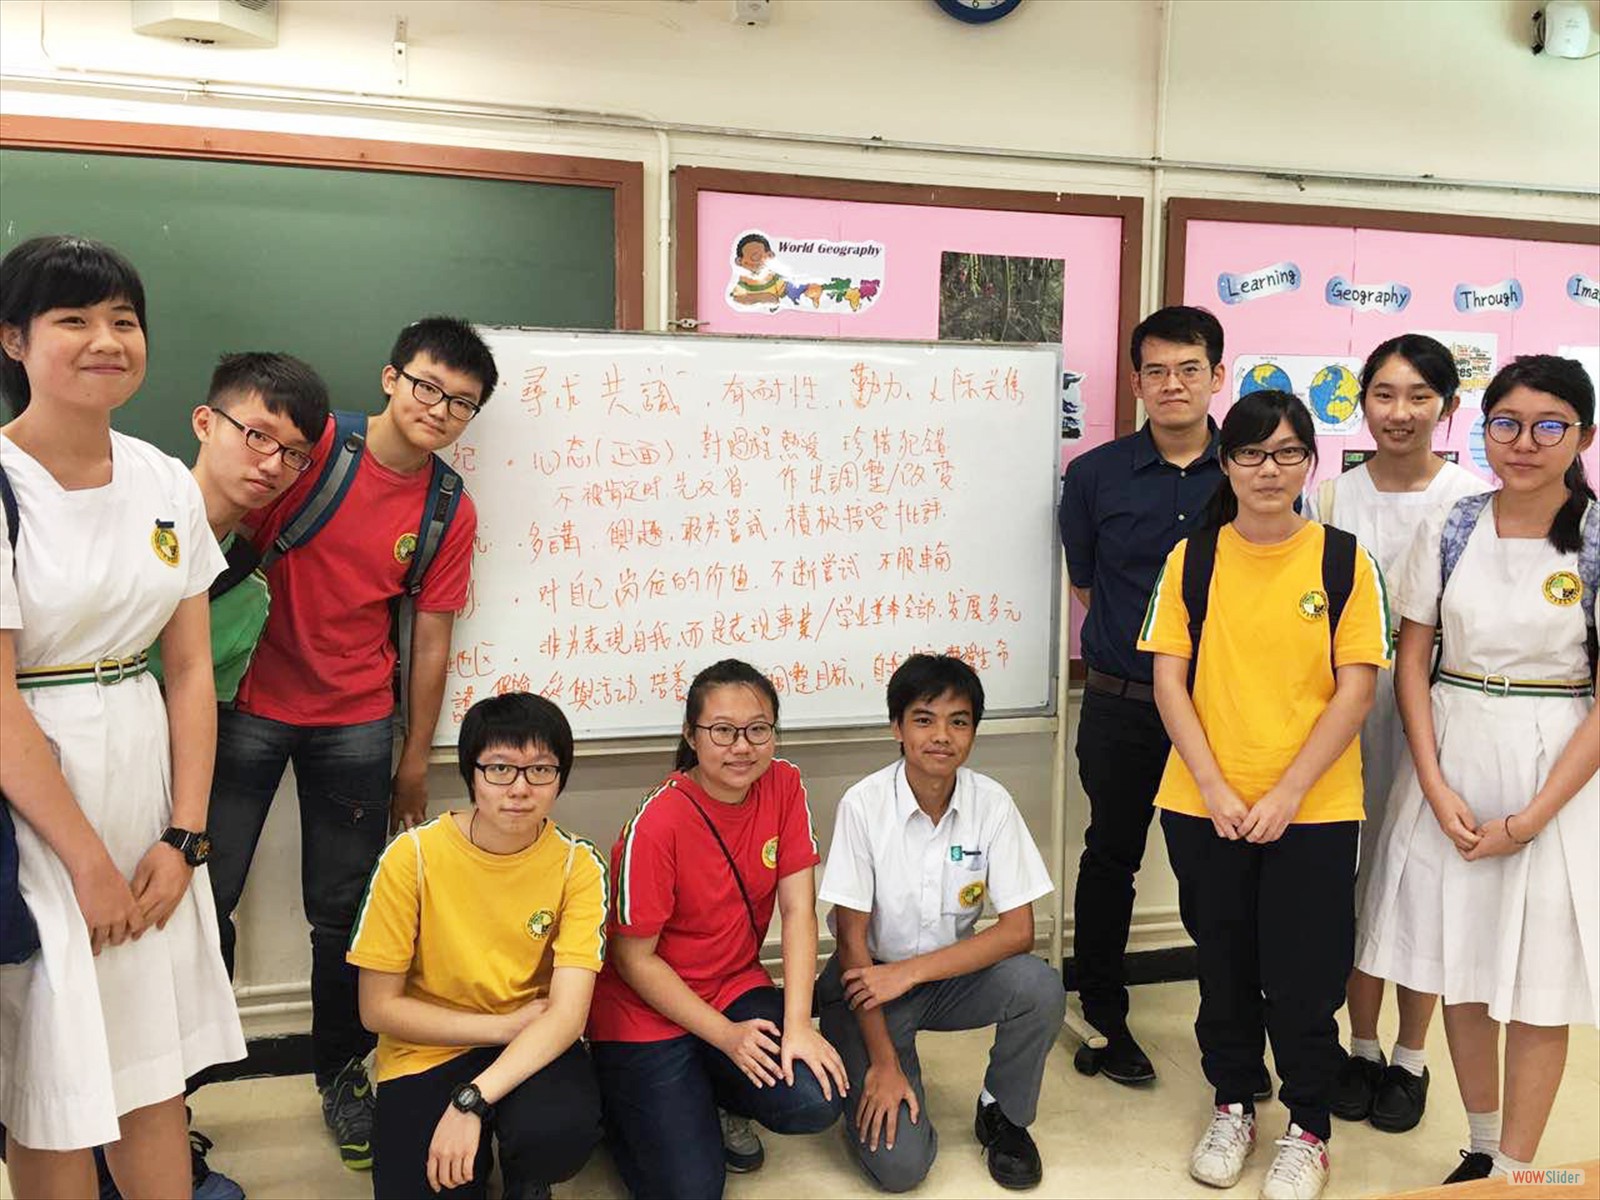 World Geography
Learning Geography Through
・尋求共識，有耐性，勤力，人际关係
纪 ・心态(正面)，對過程熱愛，珍惜犯錯
不被肯定时，先反省，作出調整/改变
・多講，興趣，敢於嘗試，積极接受批評.
・对自己岗位的价值，不断嘗试 不服輸
地区・非为表現自我，而是表现事業/学业
发展多元
與活动，培養
調整目标，
生命
WOWSlider